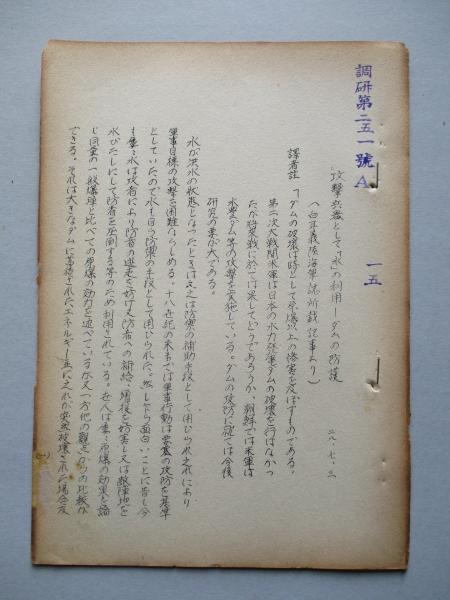 調研第二五一號A
一五
攻撃兵器として「水」の利用—ダムの防護
（白耳義陸海軍誌所載記事より）
二八・七・二
譯者註「ダムの破壊は時として原爆以上の惨害を及ぼすものである。
第二次大戦間米軍は日本の水力発電ダムの破壊を行はなかつ
たが将来戦に於ては果してどうであろうか、朝鮮では米軍は
水豊ダム等の攻撃を実施している。ダムの攻防に就ては今後
研究の要が大である。
水が洪水の状態となつたときは又之は防禦の補助手段として用ひられ之れにより
軍事目標の攻撃を困難ならしめる。十八世紀の末までは軍事行動は要塞の攻防を基準
としていたので水も自ら防禦の手段として用ひられた。然し乍ら面白いことに昔も今
も屡々水は攻者により防者の退走を妨げ又防者への補給、増援を妨害し又は敵陣地を
水びたしにして防者を圧倒する等のため利用されている。世人は屡々原爆の効果を論
じ同量の一般爆弾と比べての原爆の効力を述べているが又一方他の観点からの比較が
できる。それは大きなダムに蓄積されたエネルギー並に之れが突然破壊された場合及
(一)